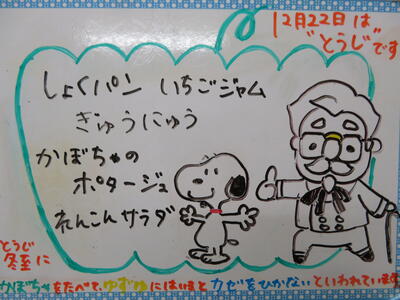 12月22日は
"とうじ"です
しょくパン いちごジャム
ぎゅうにゅう
かぼちゃの
ポタージュ
れんこんサラダ
とうじ
冬至に
かぼちゃをたべて、ゆずゆにはいるとカゼをひかないといわれています